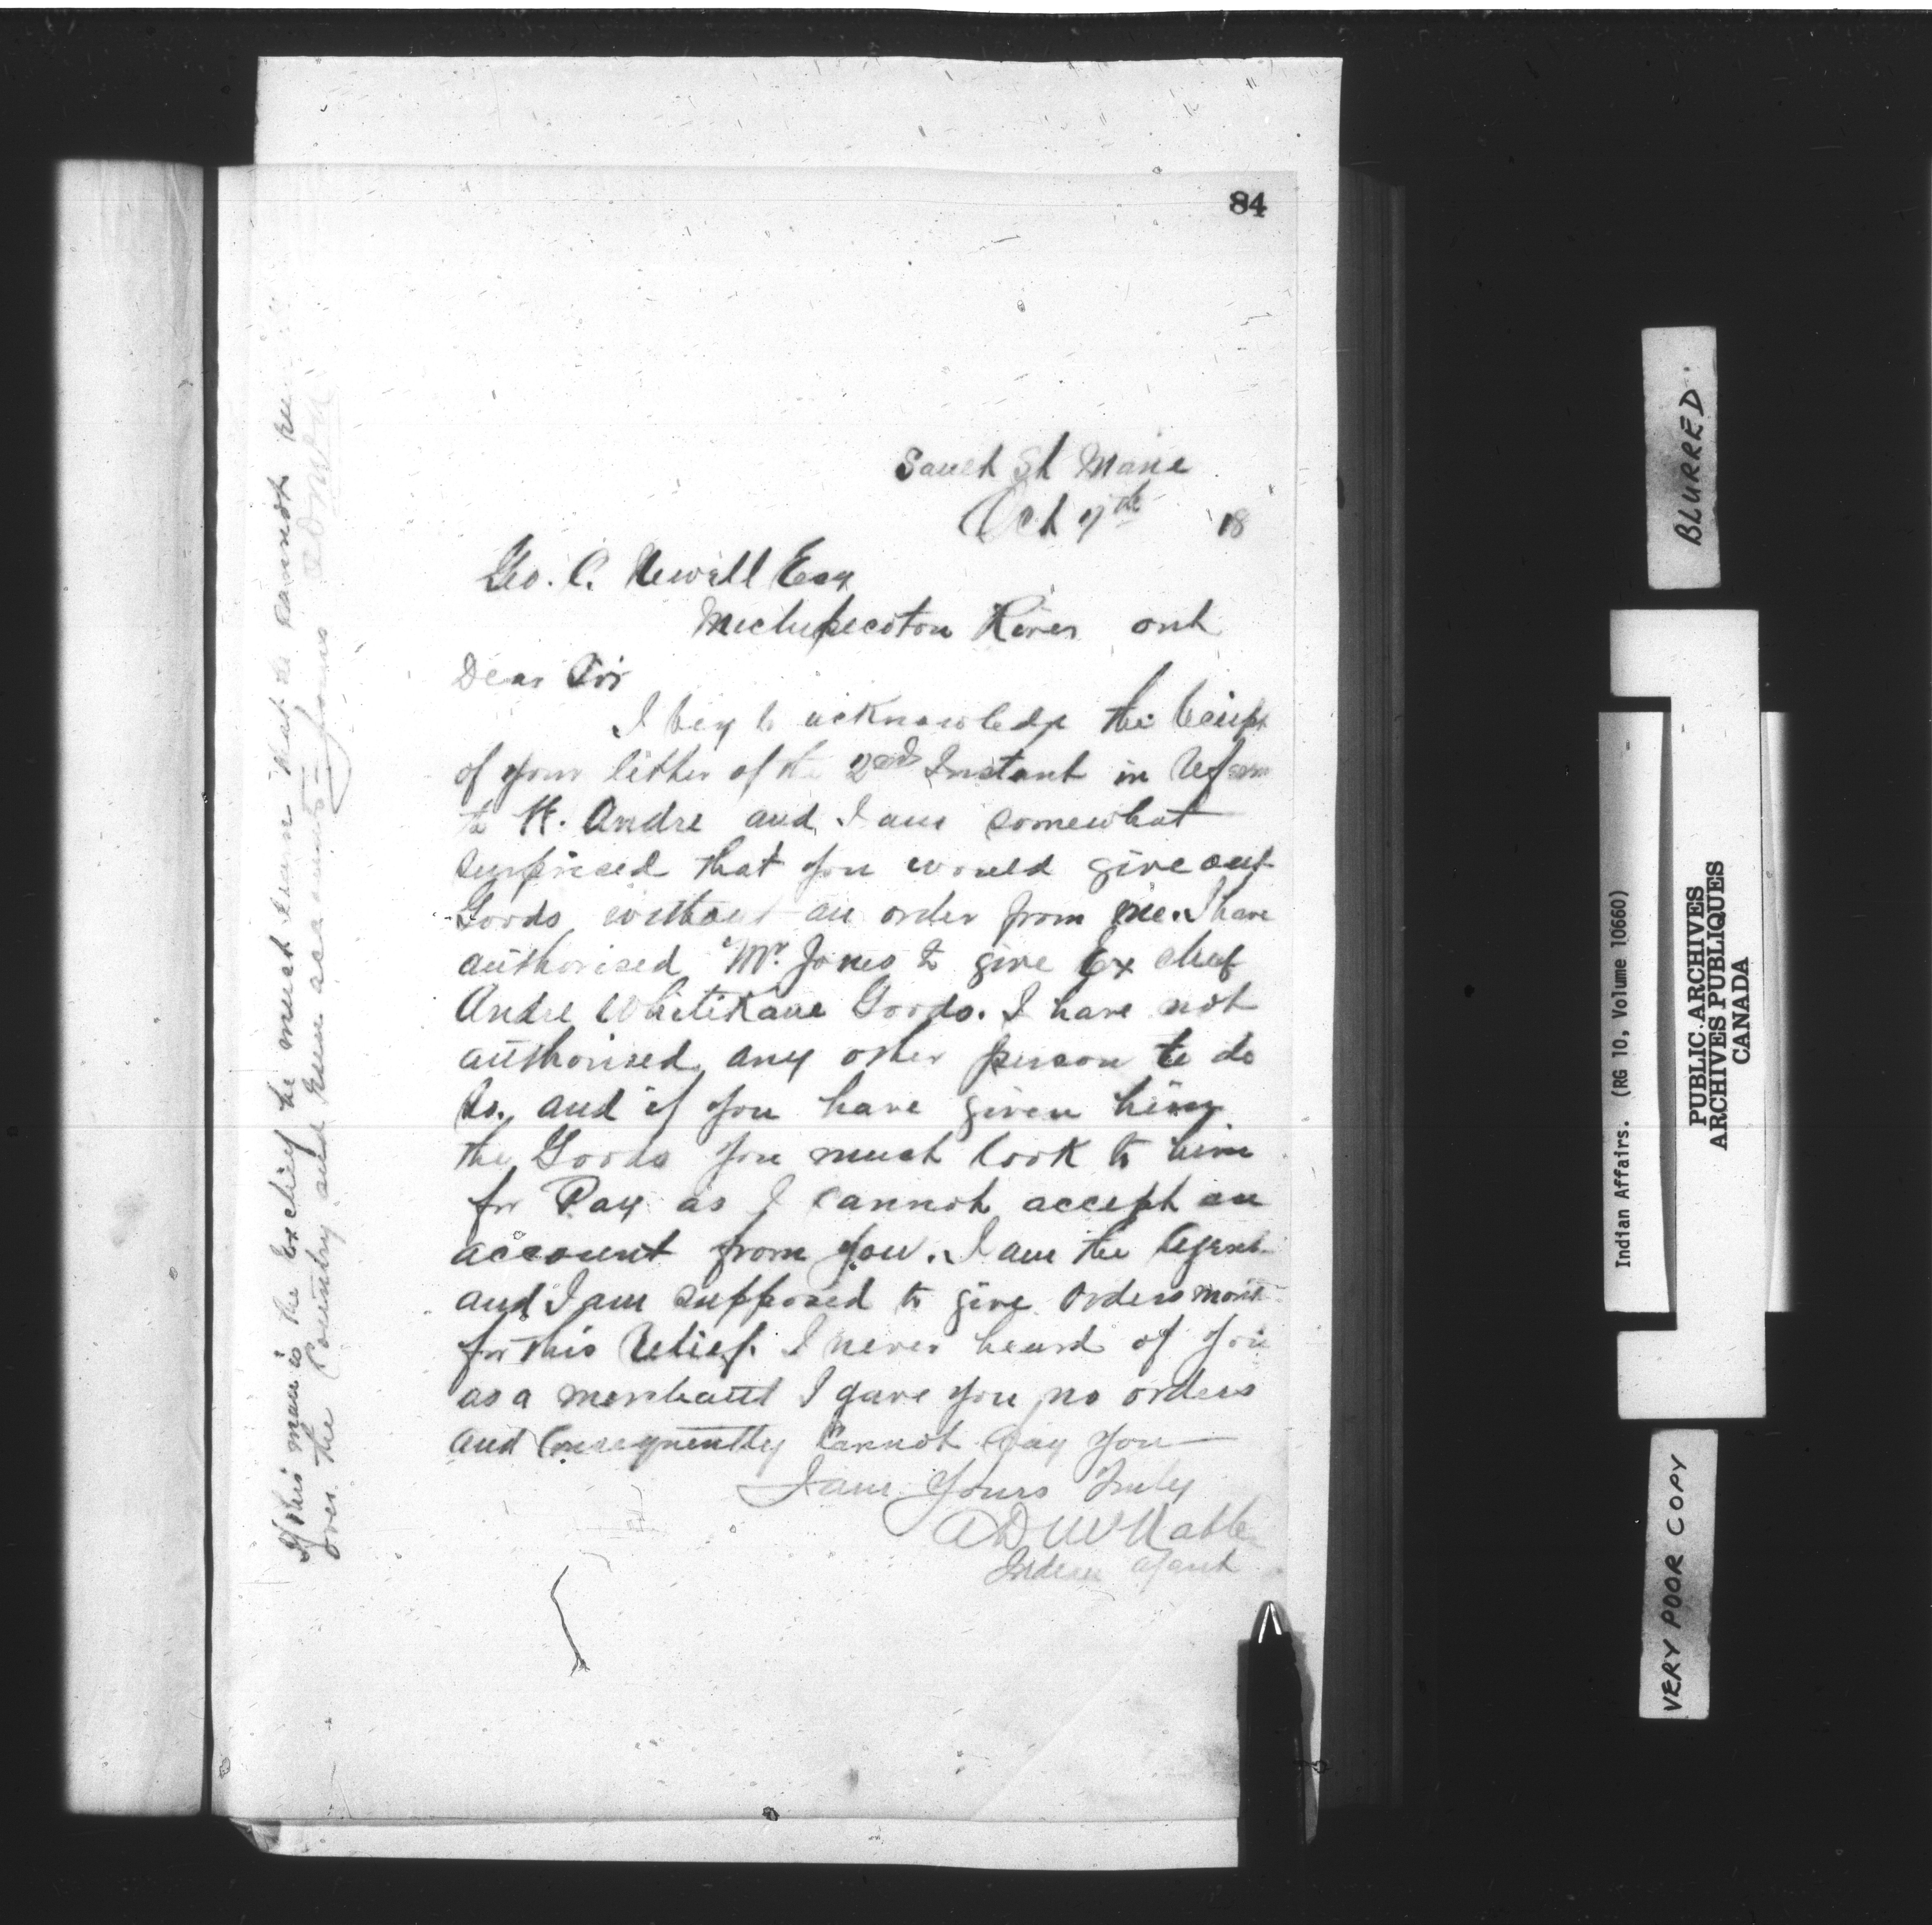 84
Sault St Marie
Oct 7th 18
Geo. C. Newall Esq
Michipecoton River ont
Dear Sir
I beg to acknowledge the
of your letter of the 2nd Instant in
to H. Andre and I am somewhat
surprised that you would give out
Goods without an order from me. I have
authorised Mr. Jones to give Ex chief
Andre Goods. I have not
authorised any other person to do
So. and if you have given him
the Goods you must look to him
for Pay as I cannot accept an
account from you. I am the Agent
and I am supposed to give Orders
for this relief. I never heard of you
as a merchant I gave you no orders
and Consequently Cannot Pay you
I am Yours Truly
Indian Agent
If this man is the Ex chief he must learn that he cannot run
over the Country and run accounts
BLURRED.
Indian Affairs. (RG 10, Volume 10660)
PUBLIC ARCHIVES
ARCHIVES PUBLIQUES
CANADA
VERY POOR COPY